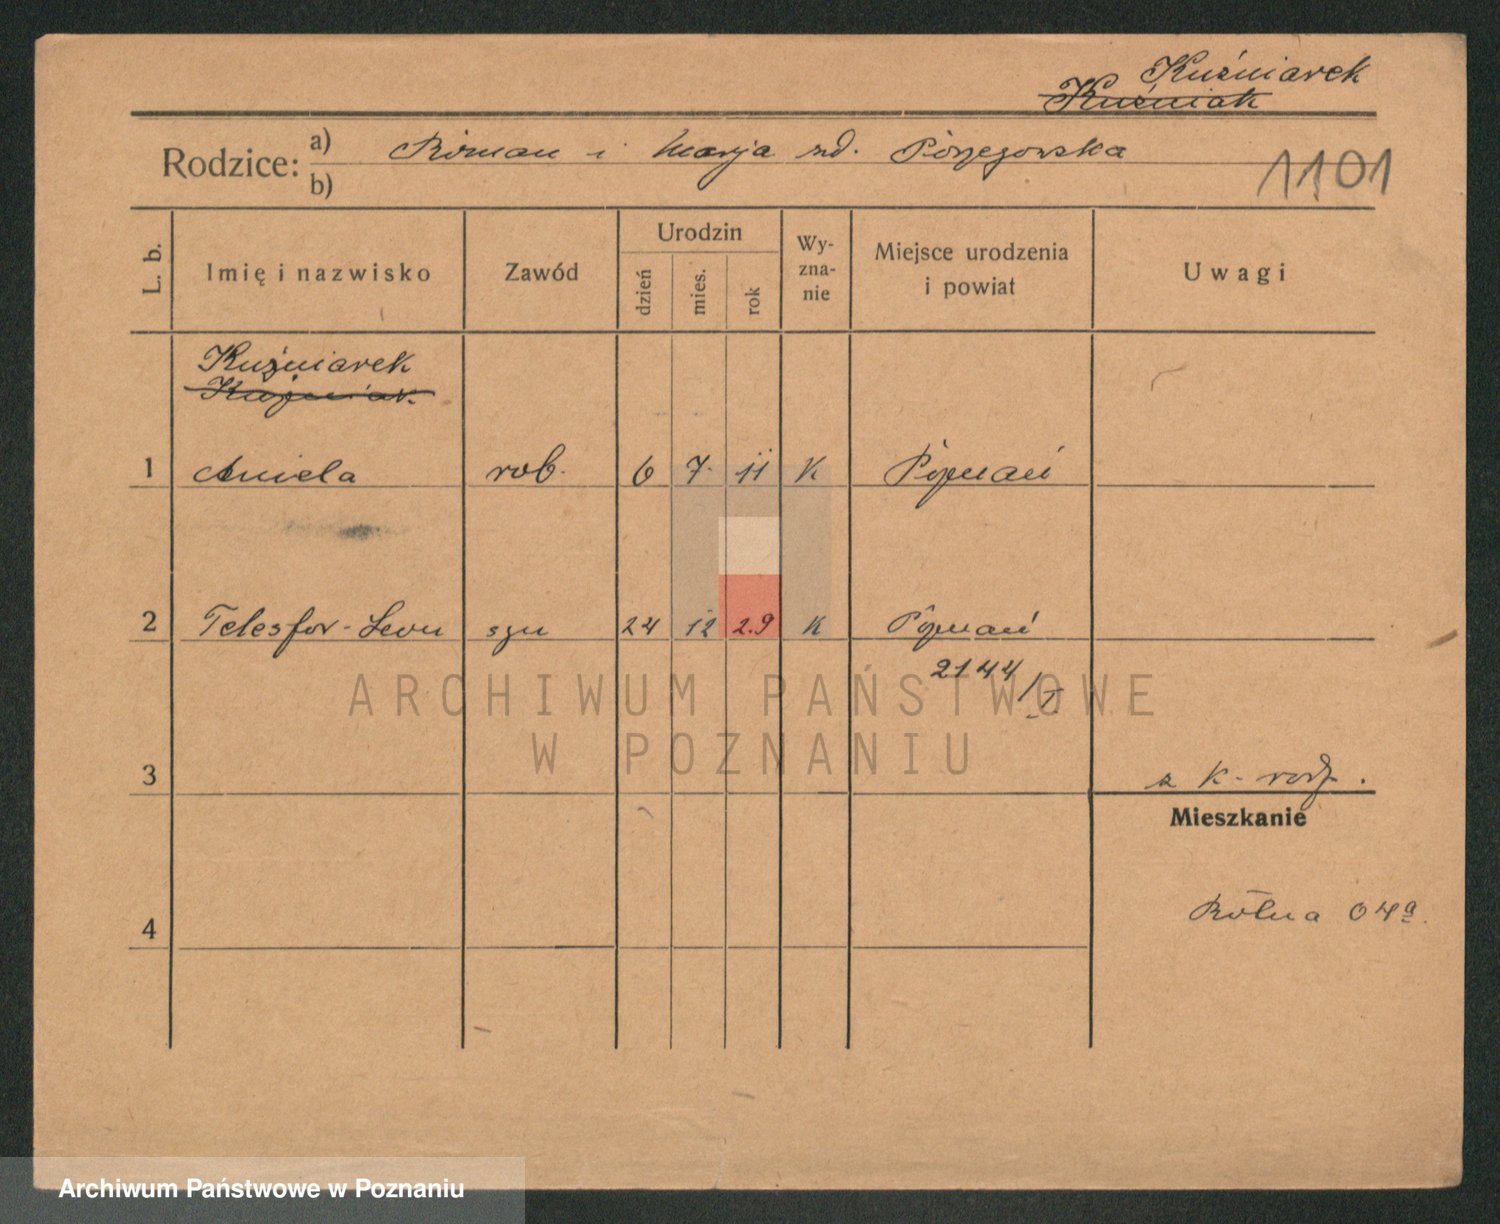 Kuźniarek
Kuźniak
Rodzice: a) Roman i Marja zd.
b)
1101
L. b.
Imię i nazwisko
Zawód
Urodzin
dzień
mies.
rok
Wy-
zna-
nie
Miejsce urodzenia
i powiat
Uwagi
Kuźniarek
1 Aniela rob. 6 7. 11 K Poznań
2 Telesfor-Leon syn 24 12 29 K Poznań
2144/I
ARCHIWUM PAŃSTWOWE
W POZNANIU
3
z k. rodz.
Mieszkanie
4
Rolna 04a.
Archiwum Państwowe w Poznaniu